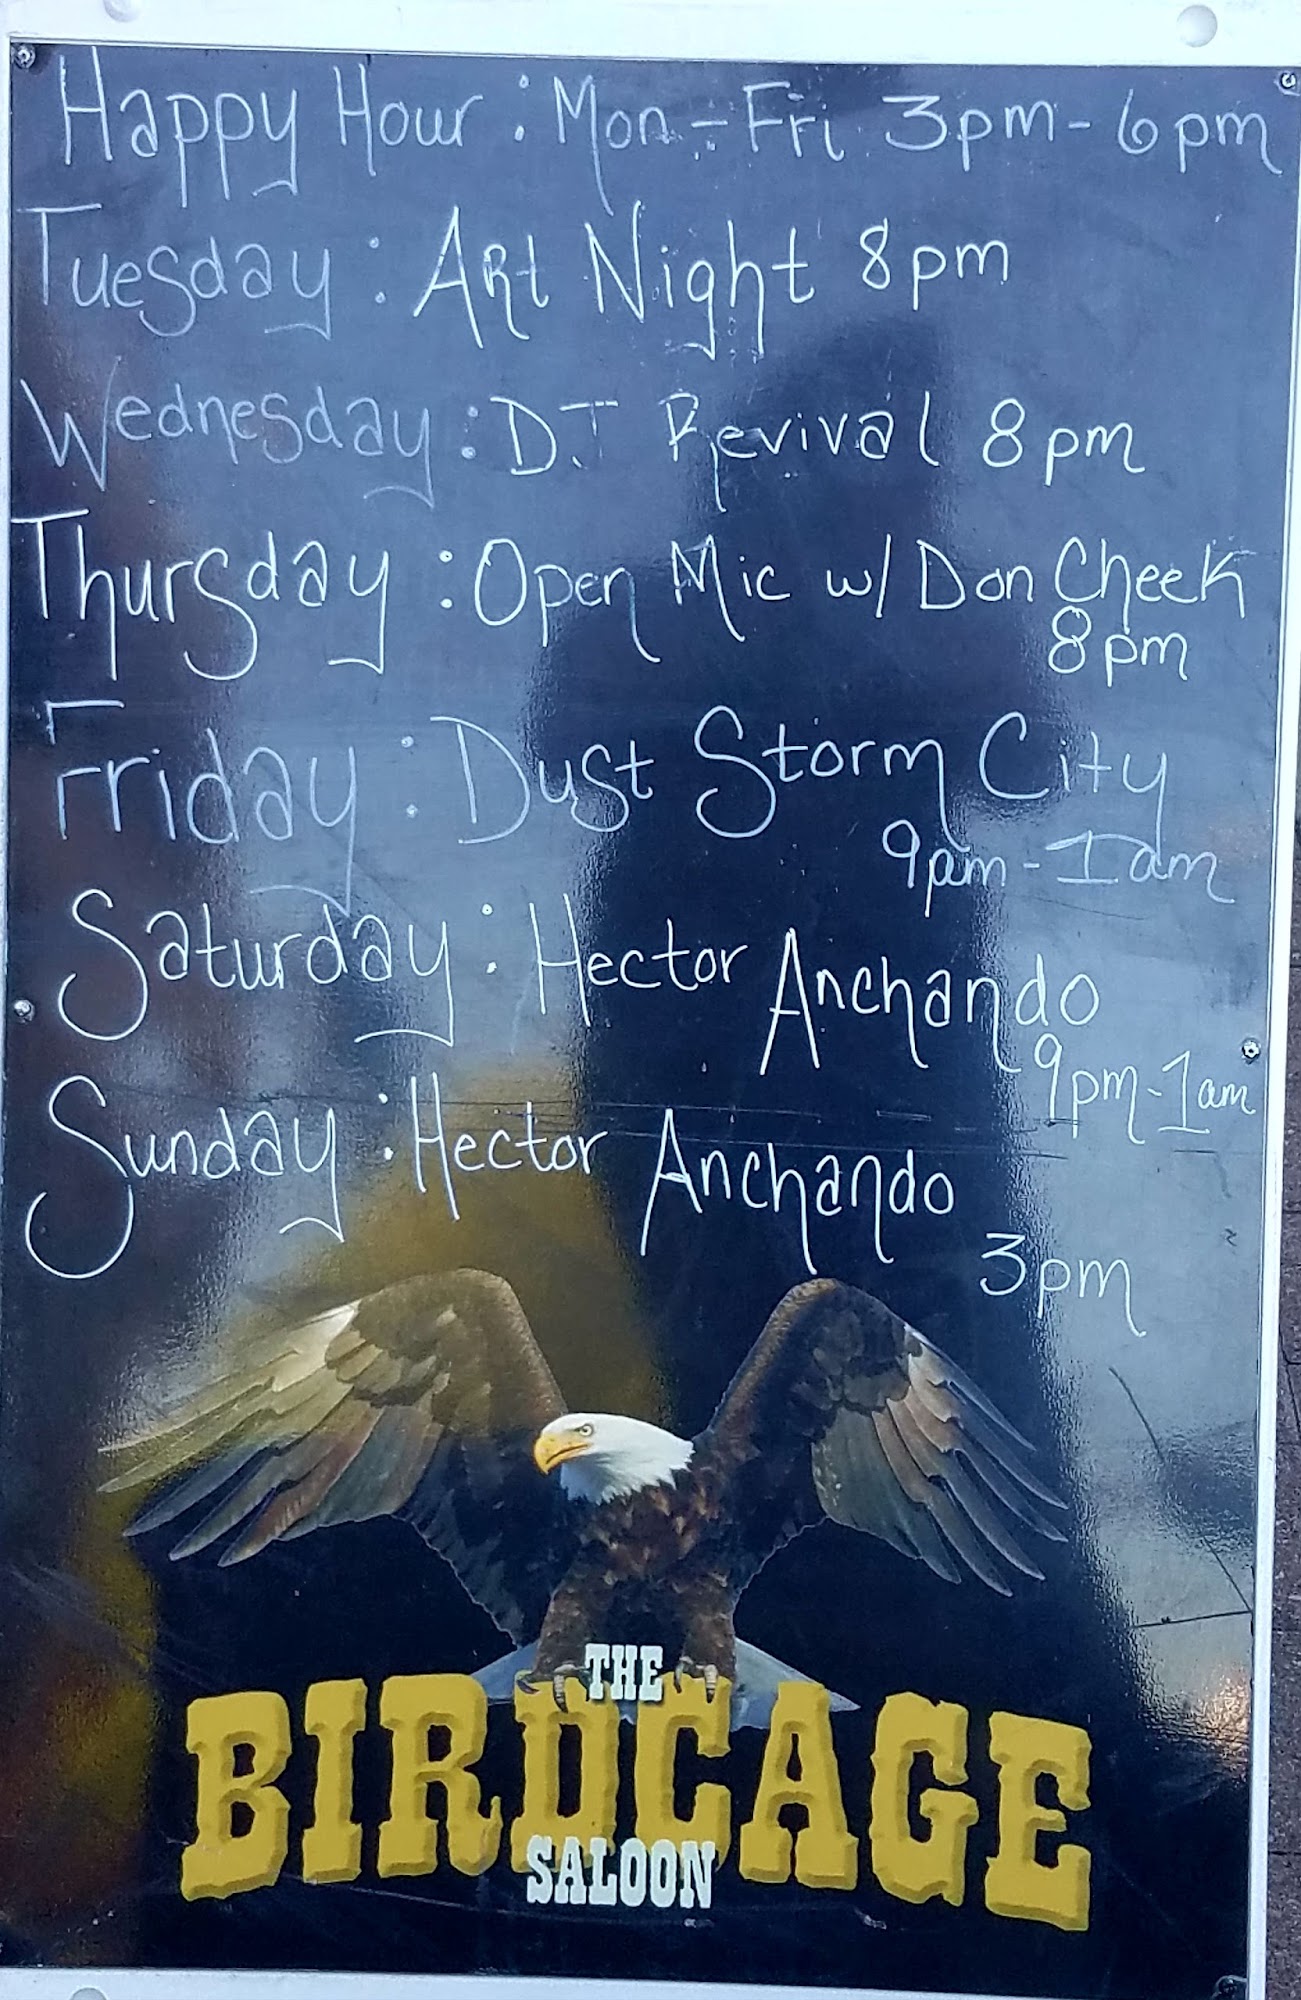 Happy Hour : Mon - Fri 3pm - 6pm
Tuesday : Art Night 8pm
Wednesday : DJ Revival 8pm
Thursday : Open Mic w/ Don Cheek
8pm
Friday : Dust Storm City
9pm - 1am
Saturday : Hector Anchando
9pm - 1am
Sunday : Hector Anchando
3pm
THE
BIRDCAGE
SALOON